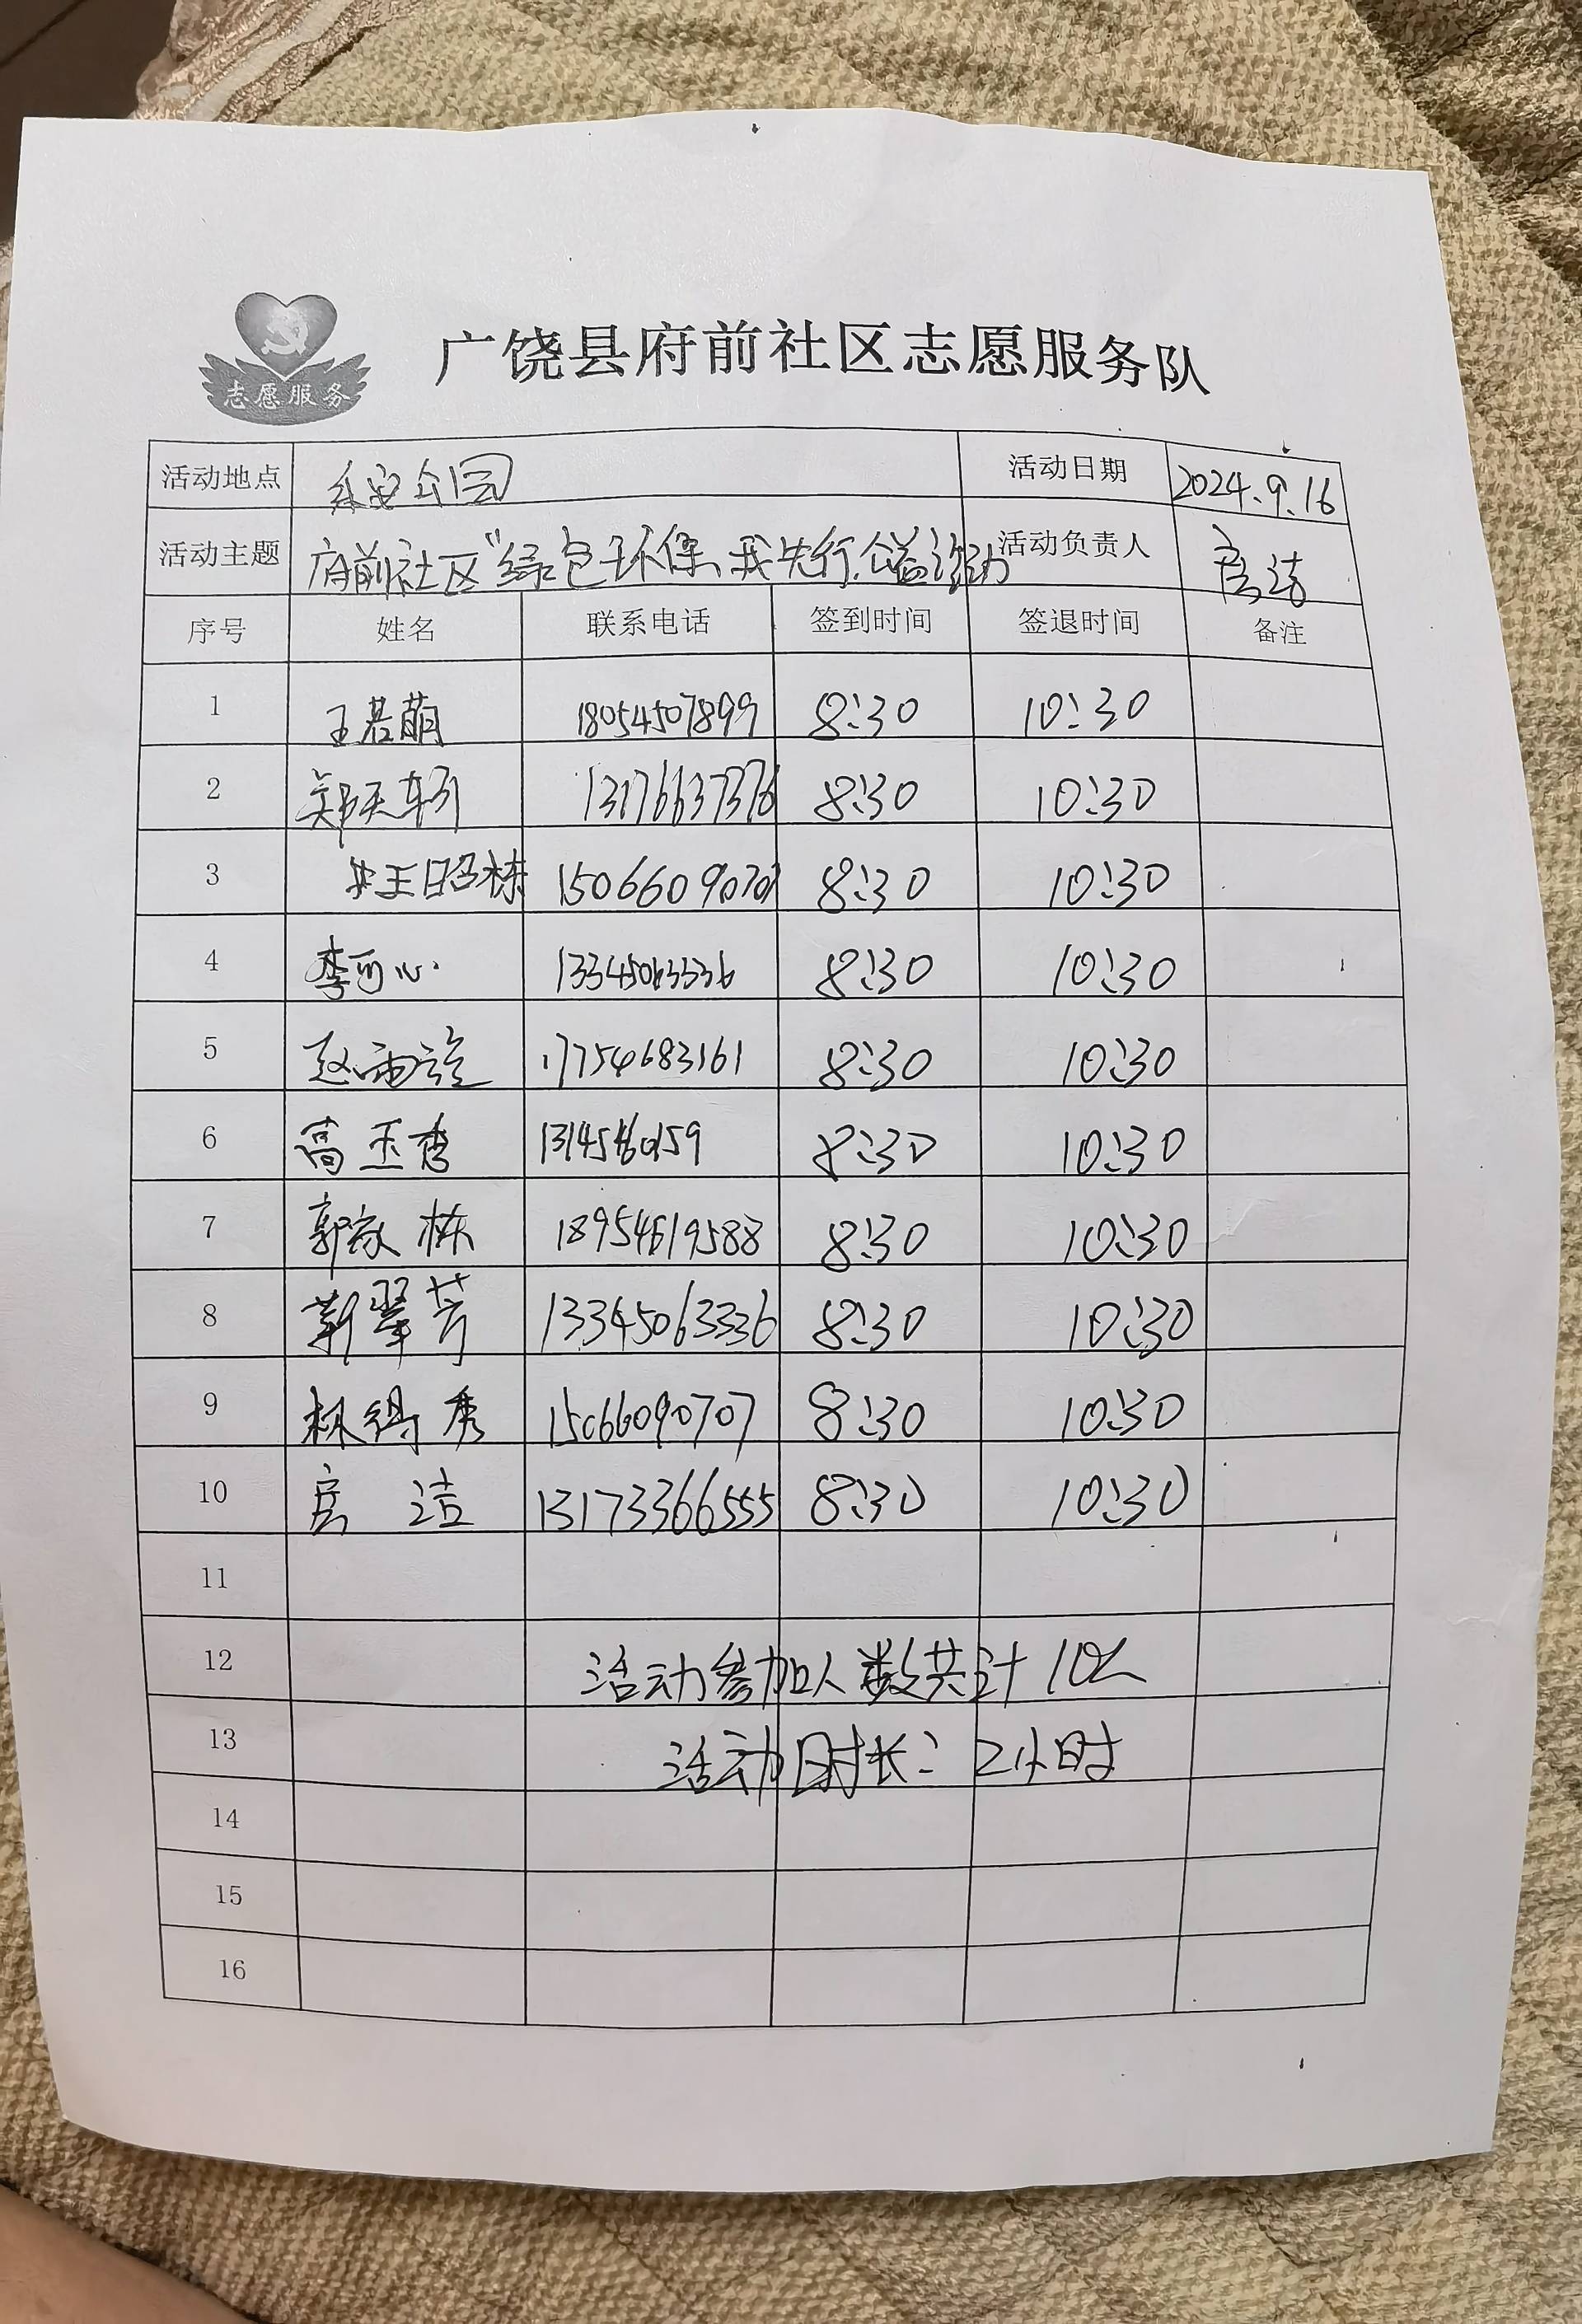 志愿服务
广饶县府前社区志愿服务队
活动地点 永安公园 活动日期 2024.9.16
活动主题 府前社区“绿色环保、我先行”公益活动 活动负责人 房洁
序号 姓名 联系电话 签到时间 签退时间 备注
1 王若萌 18054507899 8:30 10:30
2 郑天 13176637376 8:30 10:30
3 王昭栋 15066090707 8:30 10:30
4 李可心 8:30 10:30
5 赵雨 17754683161 8:30 10:30
6 高玉秀 8:30 10:30
7 郭家栋 18954619588 8:30 10:30
8 靳翠芳 13345063336 8:30 10:30
9 林得秀 15066090707 8:30 10:30
10 房洁 13173366555 8:30 10:30
11
12 活动参加人数共计10人
13 活动时长:2小时
14
15
16